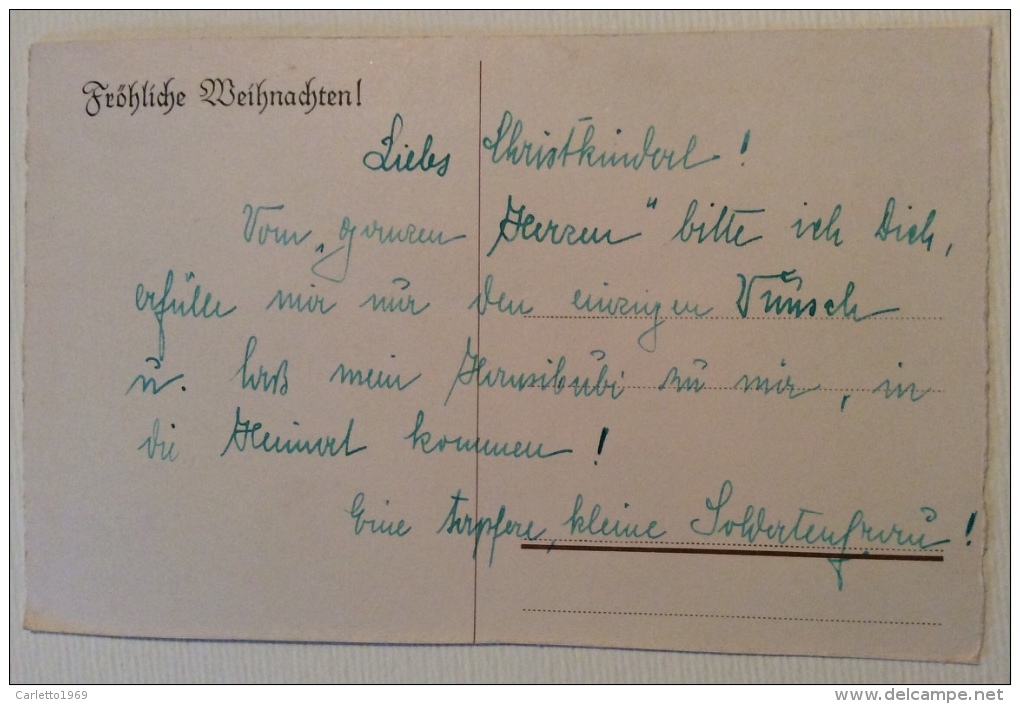 Fröhliche Weihnachten!
Liebes Christkinderl!
Vom „ganzen Herzen" bitte ich Dich,
erfülle mir nur den einzigen Wunsch
u. laß mein Hansibubi zu mir, in
die Heimat kommen!
Eine tapfere, kleine Soldatenfrau!
Carletto1969
www.delcampe.net